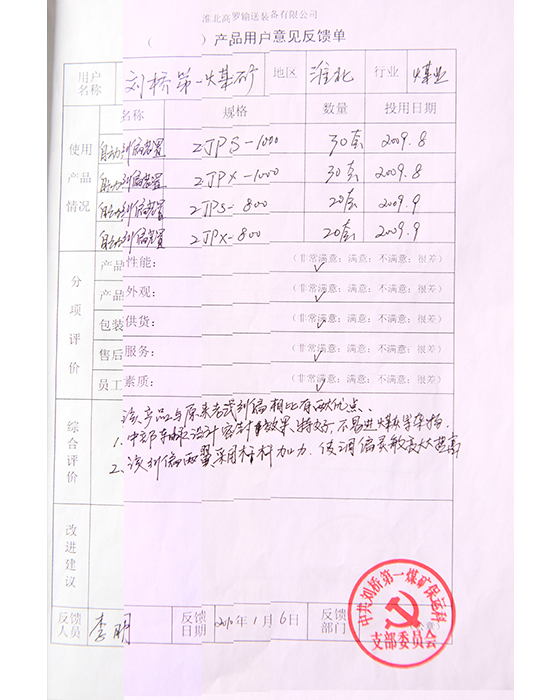 淮北高罗输送装备有限公司
( )产品用户意见反馈单
用户名称 刘桥第一煤矿 地区 淮北 行业 煤业
使用产品情况
名称 规格 数量 投用日期
自动纠偏装置 ZJPS-1000 30套 2009.8
自动纠偏装置 ZJPX-1000 30套 2009.8
自动纠偏装置 ZJPS-800 20套 2009.9
自动纠偏装置 ZJPX-800 20套 2009.9
分项评价
产品性能: (非常满意;满意;不满意;很差)
产品外观: (非常满意;满意;不满意;很差)
包装供货: (非常满意;满意;不满意;很差)
售后服务: (非常满意;满意;不满意;很差)
员工素质: (非常满意;满意;不满意;很差)
综合评价
该产品与原来老式纠偏相比有两大优点、
1、中部轴承设计密封效果特好,不易进煤粉等杂物.
2、该纠偏两翼采用杠杆加力.使调偏灵敏度大大提高
改进建议
反馈人员 李明 反馈日期 2010年1月6日 反馈部门
中共刘桥第一煤矿保运科
支部委员会